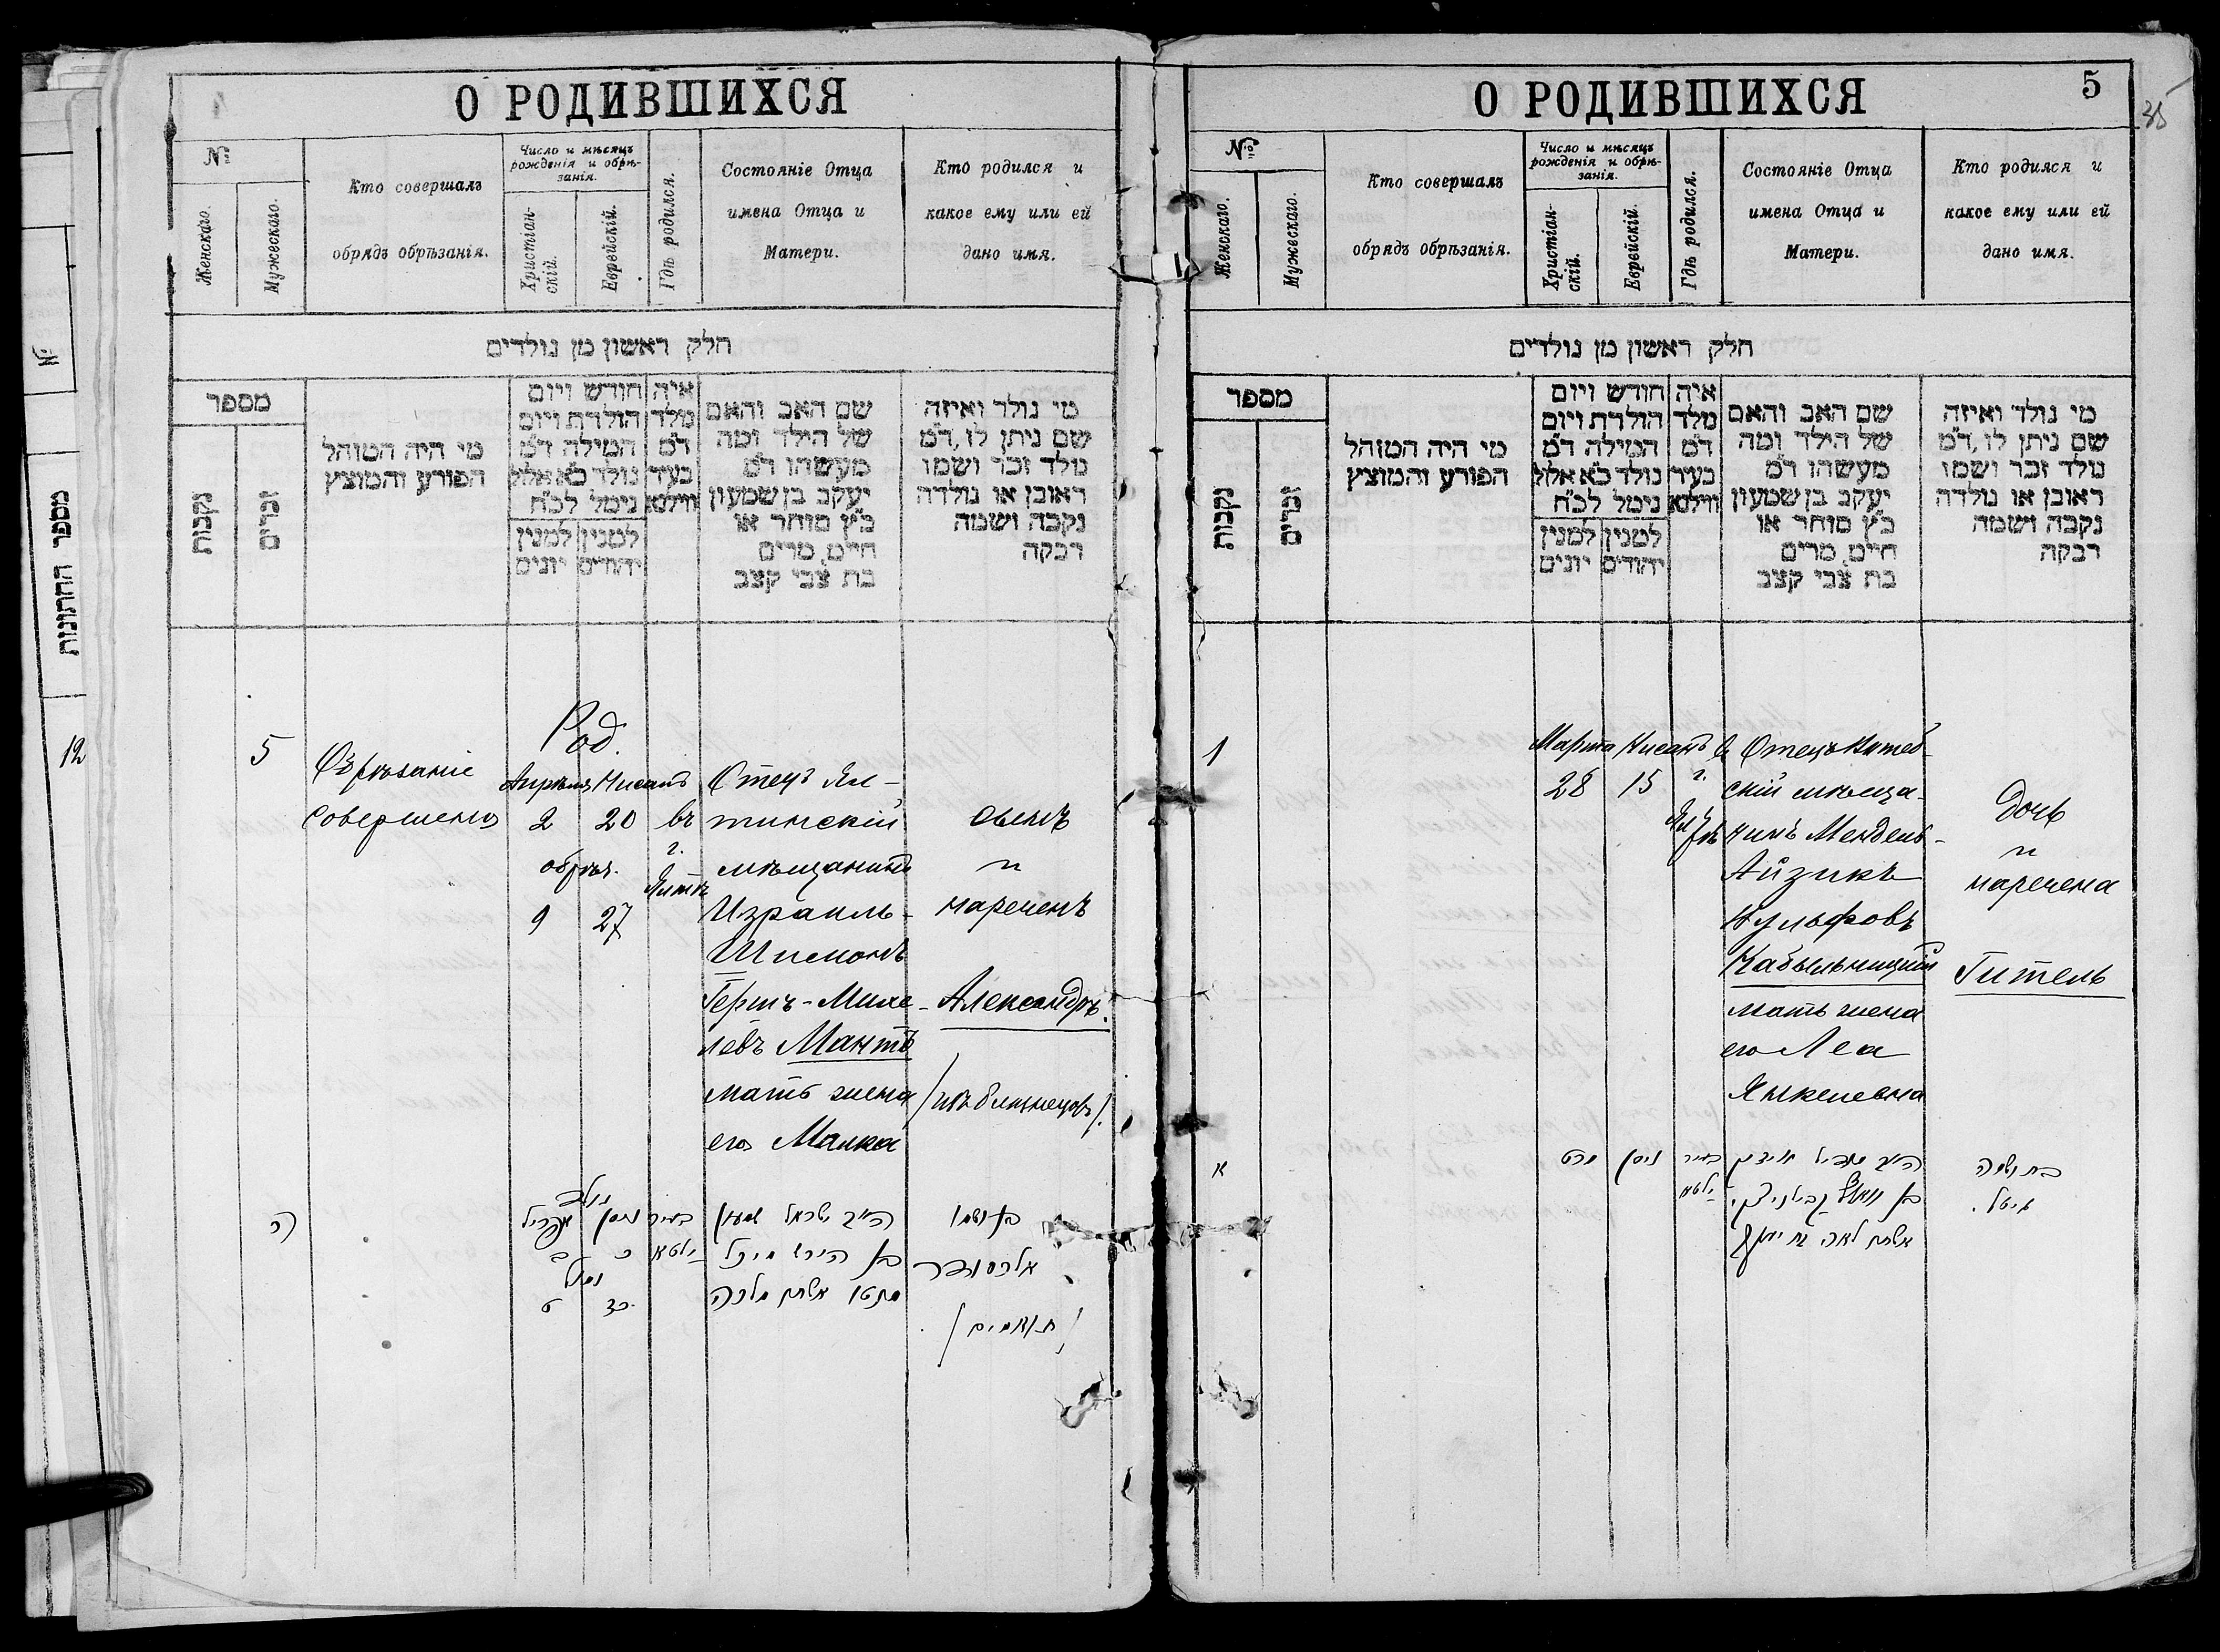 О РОДИВШИХСЯ
№
Женскаго.
Мужескаго.
Кто совершалъ
обрядъ обрѣзанія.
Число и мѣсяцъ
рожденія и обрѣ-
занія.
Христіан-
скій.
Еврейскій.
Гдѣ родился.
Состояніе Отца
имена Отца и
Матери.
Кто родился и
какое ему или ей
дано имя.
חלק ראשון מן נולדים
מספר
נקבות
זכרים
מי היה המוהל
הפורע והמוצץ
חודש ויום
הולדת ויום
המילה ד״מ
נולד כ״א אלול
נימל לכ״ח
למנין
יונים
למנין
יהודים
איה
מלד
ד״מ
בעיר
ווילנא
שם האב והאם
של הילד ומה
מעשהו ד״מ
יעקב בן שמעון
כ״ץ סוחר או
חיים, מרים
בת צבי קצב
מי נולד ואיזה
שם ניתן לו, ד״מ
מלד זכר ושמו
ראובן או נולדה
נקבה ושמה
רבקה
5
Обрѣзаніе
совершено
Род.
Апрѣля Нисанъ
2 20
обрѣз.
9 27
въ
г.
Ялтѣ
Отецъ Ял-
тинскій
мѣщанинъ
Израиль-
Шимонъ
Герш-Михе-
левъ Мантъ
мать жена
его Малка
сынъ
и
нареченъ
Александръ.
/изъ близнецовъ/.
ה
נולד
אפריל ניסן
ב כ
נמול
ט כז
בעיר
ילטא
האב ישראל שמעון
בן הירש מיכל
מנטו אשתו מלכה
בן ושמו
אלכסנדר
/תאומים/
12
№
מספר החתונות
О РОДИВШИХСЯ
5
35
№
Женскаго.
Мужескаго.
Кто совершалъ
обрядъ обрѣзанія.
Число и мѣсяцъ
рожденія и обрѣ-
занія.
Христіан-
скій.
Еврейскій.
Гдѣ родился.
Состояніе Отца
имена Отца и
Матери.
Кто родился и
какое ему или ей
дано имя.
חלק ראשון מן נולדים
מספר
נקבות
זכרים
מי היה המוהל
הפורע והמוצץ
חודש ויום
הולדת ויום
המילה ד״מ
נולד כ״א אלול
נימל לכ״ח
למנין
יונים
למנין
יהודים
איה
מלד
ד״מ
בעיר
ווילנא
שם האב והאם
של הילד ומה
מעשהו ד״מ
יעקב בן שמעון
כ״ץ סוחר או
חיים, מרים
בת צבי קצב
מי נולד ואיזה
שם ניתן לו, ד״מ
נולד זכר ושמו
ראובן או נולדה
נקבה ושמה
רבקה
1
Марта Нисанъ
28 15
въ
г.
Ялтѣ
Отецъ Витеб-
скій мѣща-
нинъ Мендель-
Айзикъ
Вульфовъ
Кабыльницкій
мать жена
его Леа
Янкелевна
дочь
и
наречена
Гитель
א
מרט ניסן
בעיר
ילטא
האב מענדיל אייזיק
בן וואלף קבילניצקי
אשתו לאה בת יענקל
בת ושמה
גיטל.